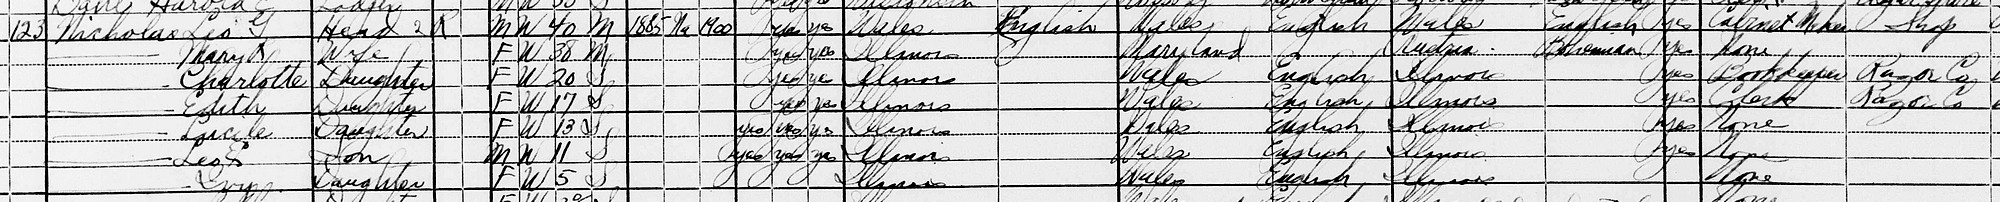 Dane Harold E Lodger M W 35
123 Nicholas Leo T Head 2 R M W 40 M 1885 Na 1900 yes yes Wales English Wales English Wales English yes Cabinet Maker Shop
Mary K Wife F W 38 M yes yes Illinois Maryland Bohemian yes None
Charlotte Daughter F W 20 S yes yes Illinois Wales English Illinois yes Bookkeeper Razor Co
Edith Daughter F W 17 S yes yes Illinois Wales English Illinois yes Clerk Razor Co
Lucile Daughter F W 13 S yes yes yes Illinois Wales English Illinois yes None
Leo Son M W 11 S yes yes yes Illinois Wales English Illinois yes None
Daughter F W 5 S Illinois Wales English Illinois None